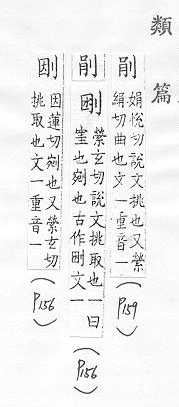 類篇
剈
娟悅切說文挑也又縈
絹切曲也文一重音一
(P159)
剈
縈玄切說文挑取也一曰
窐也剜也古作文一
(P156)
因蓮切剜也又縈玄切
挑取也文一重音一
(P156)